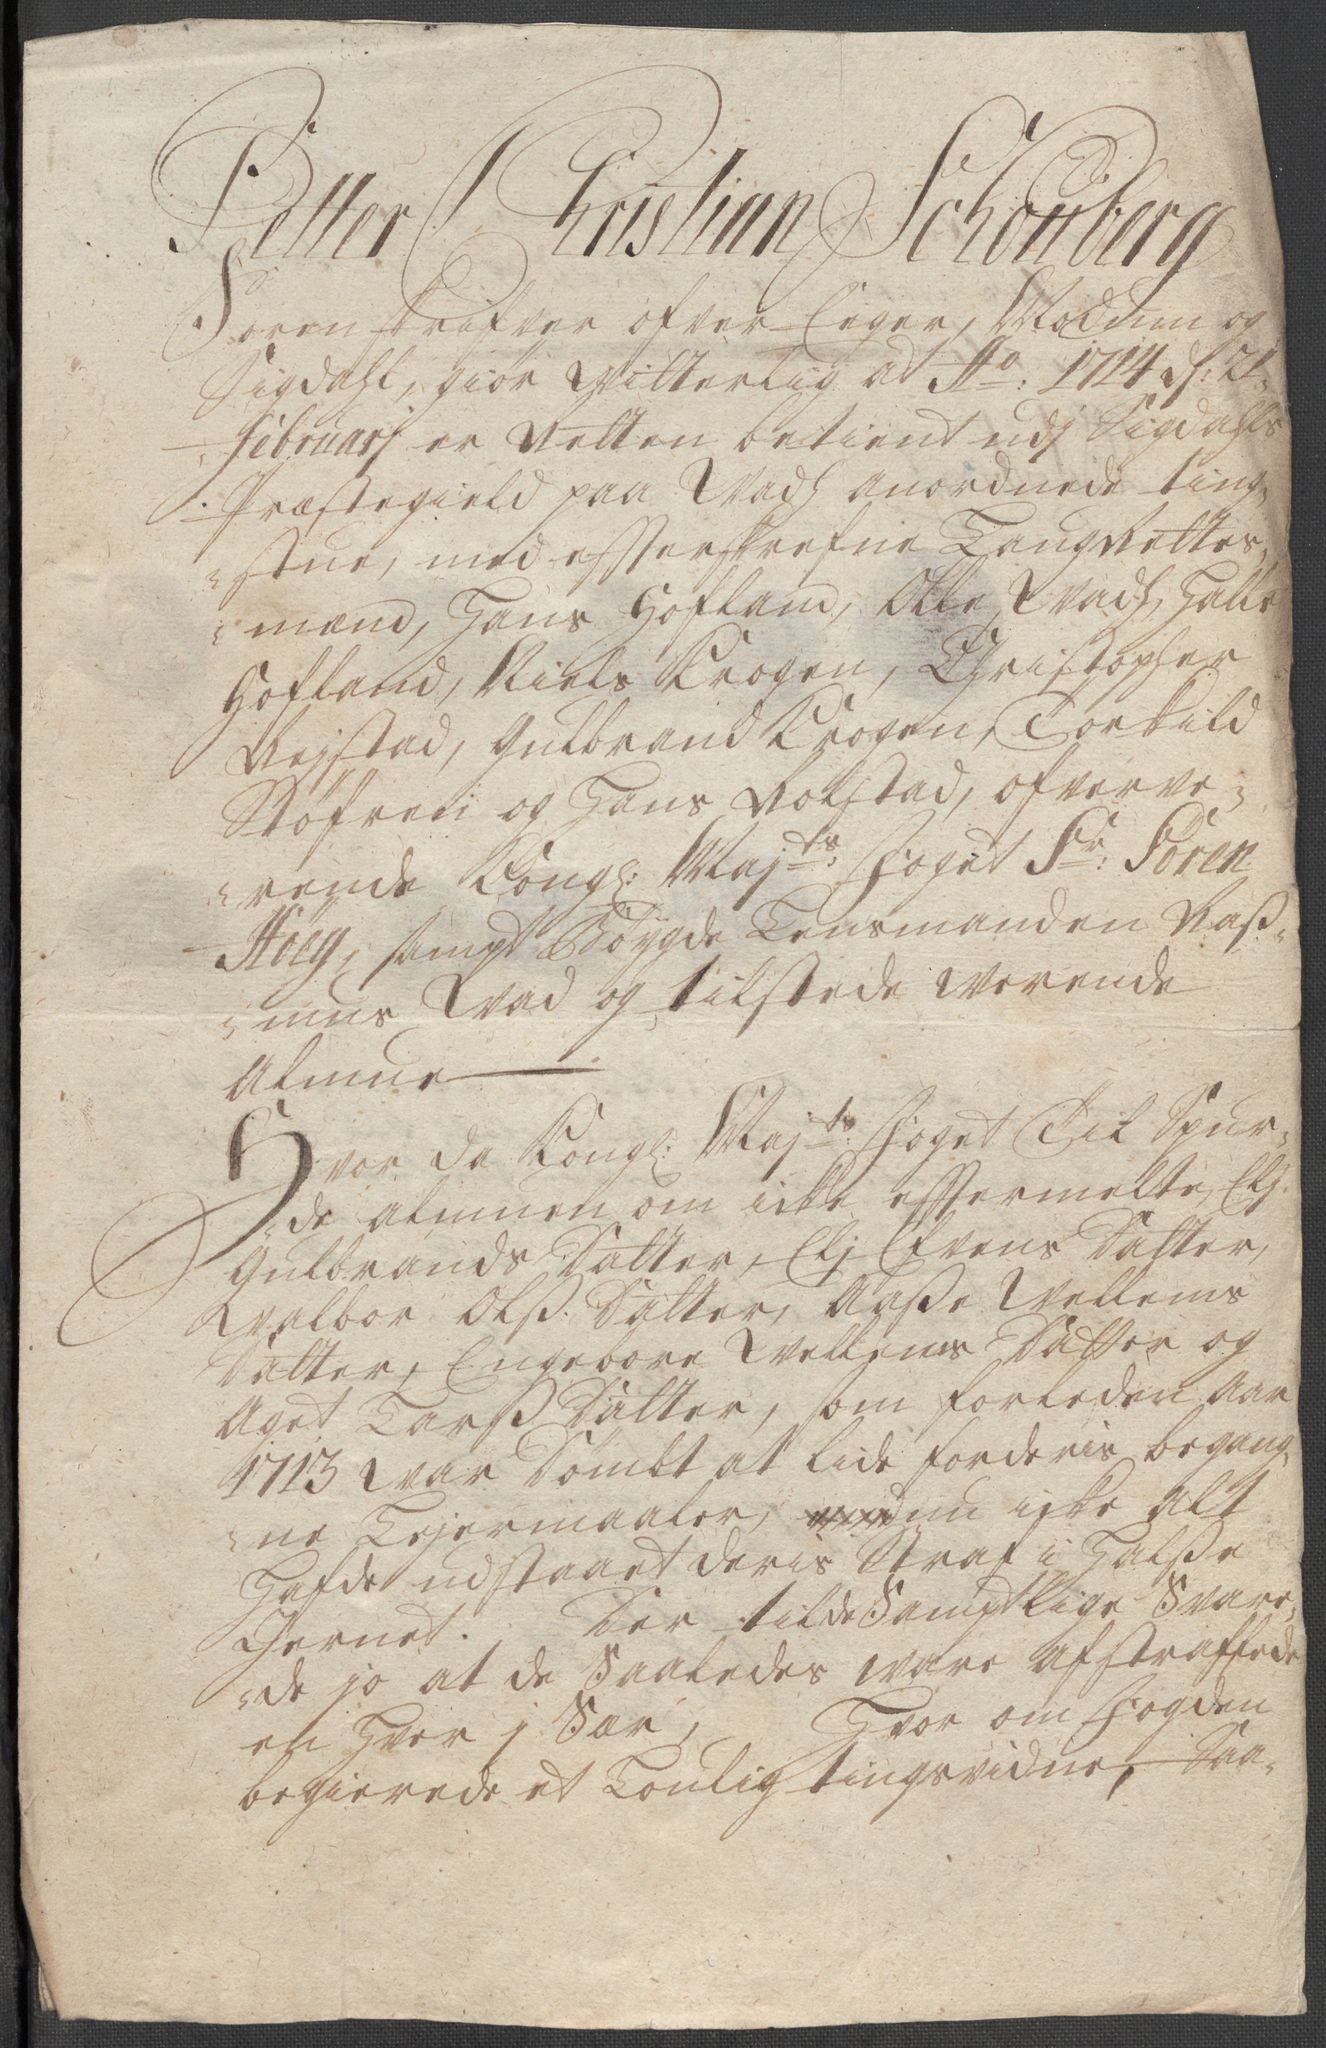 Petter Christian Schönberg
Soren skrifver ofver Eger, Modum og
Sigdahl, giör Vitterlig at Ao: 1714 d: 21
februarj er Retten betient udj Sigdahls
Præstegield paa Vad anordnede ting-
stue, med efterskrefne Laugrettes-
mænd, Hans Hofland, Olle Vad, Halle
Hofland, Niels Krogen, Christopher
Rejstad, Gulbrand Krogen, Torkild
Stöfren og Hans Rolstad, ofverve-
rende Kongl: Majts: foget Sr: Sören
Höeg, sampt Böygde Lensmanden Raß-
mus Vad og tilstede werende
Almue
Hvor da Kongl: Majts: foget Til Spur-
de almuen om icke eftermelte, Elj
Gulbrands Datter, Elj Evens Datter,
Walbor Olß: Datter, Aaße Wellems
Datter, Engebore Wellems Datter og
Aget Larß Datter, som forleden Aar
1713 War Dömbt at lide for deris begang-
ne Lejermaaler, nu icke alt
Hafde udstaaet deris Straf i Halße
Jernet. Der til de Samptlige Svare-
de jo at de Saaledes vare afstraffede
en Hver j Sær, Hvor om fogden
begierede et Loulig tingsvidne, Saa-